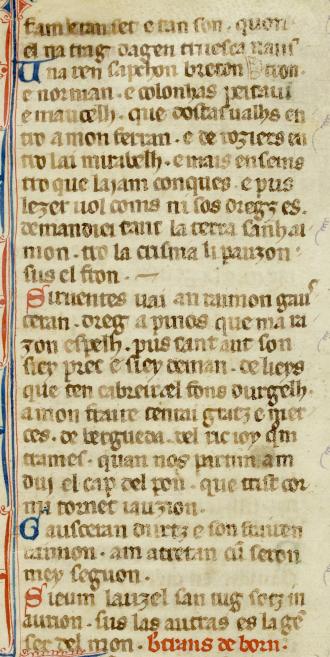 fam lera nset e tan son. quom
el na trag dagen truesca naus
Una ren sapchon breton e
e norman. e colonhas peitaui
e mancelh. que dostasualhs en
tro a mon ferran. e de rozters en
tro lai mirabelh. e mais ensems
tro que laiam conques. e pus
lezer uol coms ni sos dregz es.
demandiei tant la terra sanh ai
mon. tro la crisma li pauzon
sus el fron.
Siruentes uai an raimon gaus
ceran. dreg a pinos que ma ra
zon espelh. pus tant aut son
siey prec e siey deman. de lieys
que ten cabreira el fons durgelh.
a mon fraire ten mai gratz e mer
ces. de bergueda. del ric ioy quem
trames. quan nos partim am
dui el cap del pon. que trist cor
mi tornet iauzion.
Gausceran durtz e son frairen
raimon. am atretan cum seron
miey segon.
Sieum lauzel san tug sotz m
aurion. sus las autras es la ge
ser del mon. bertrans de born.